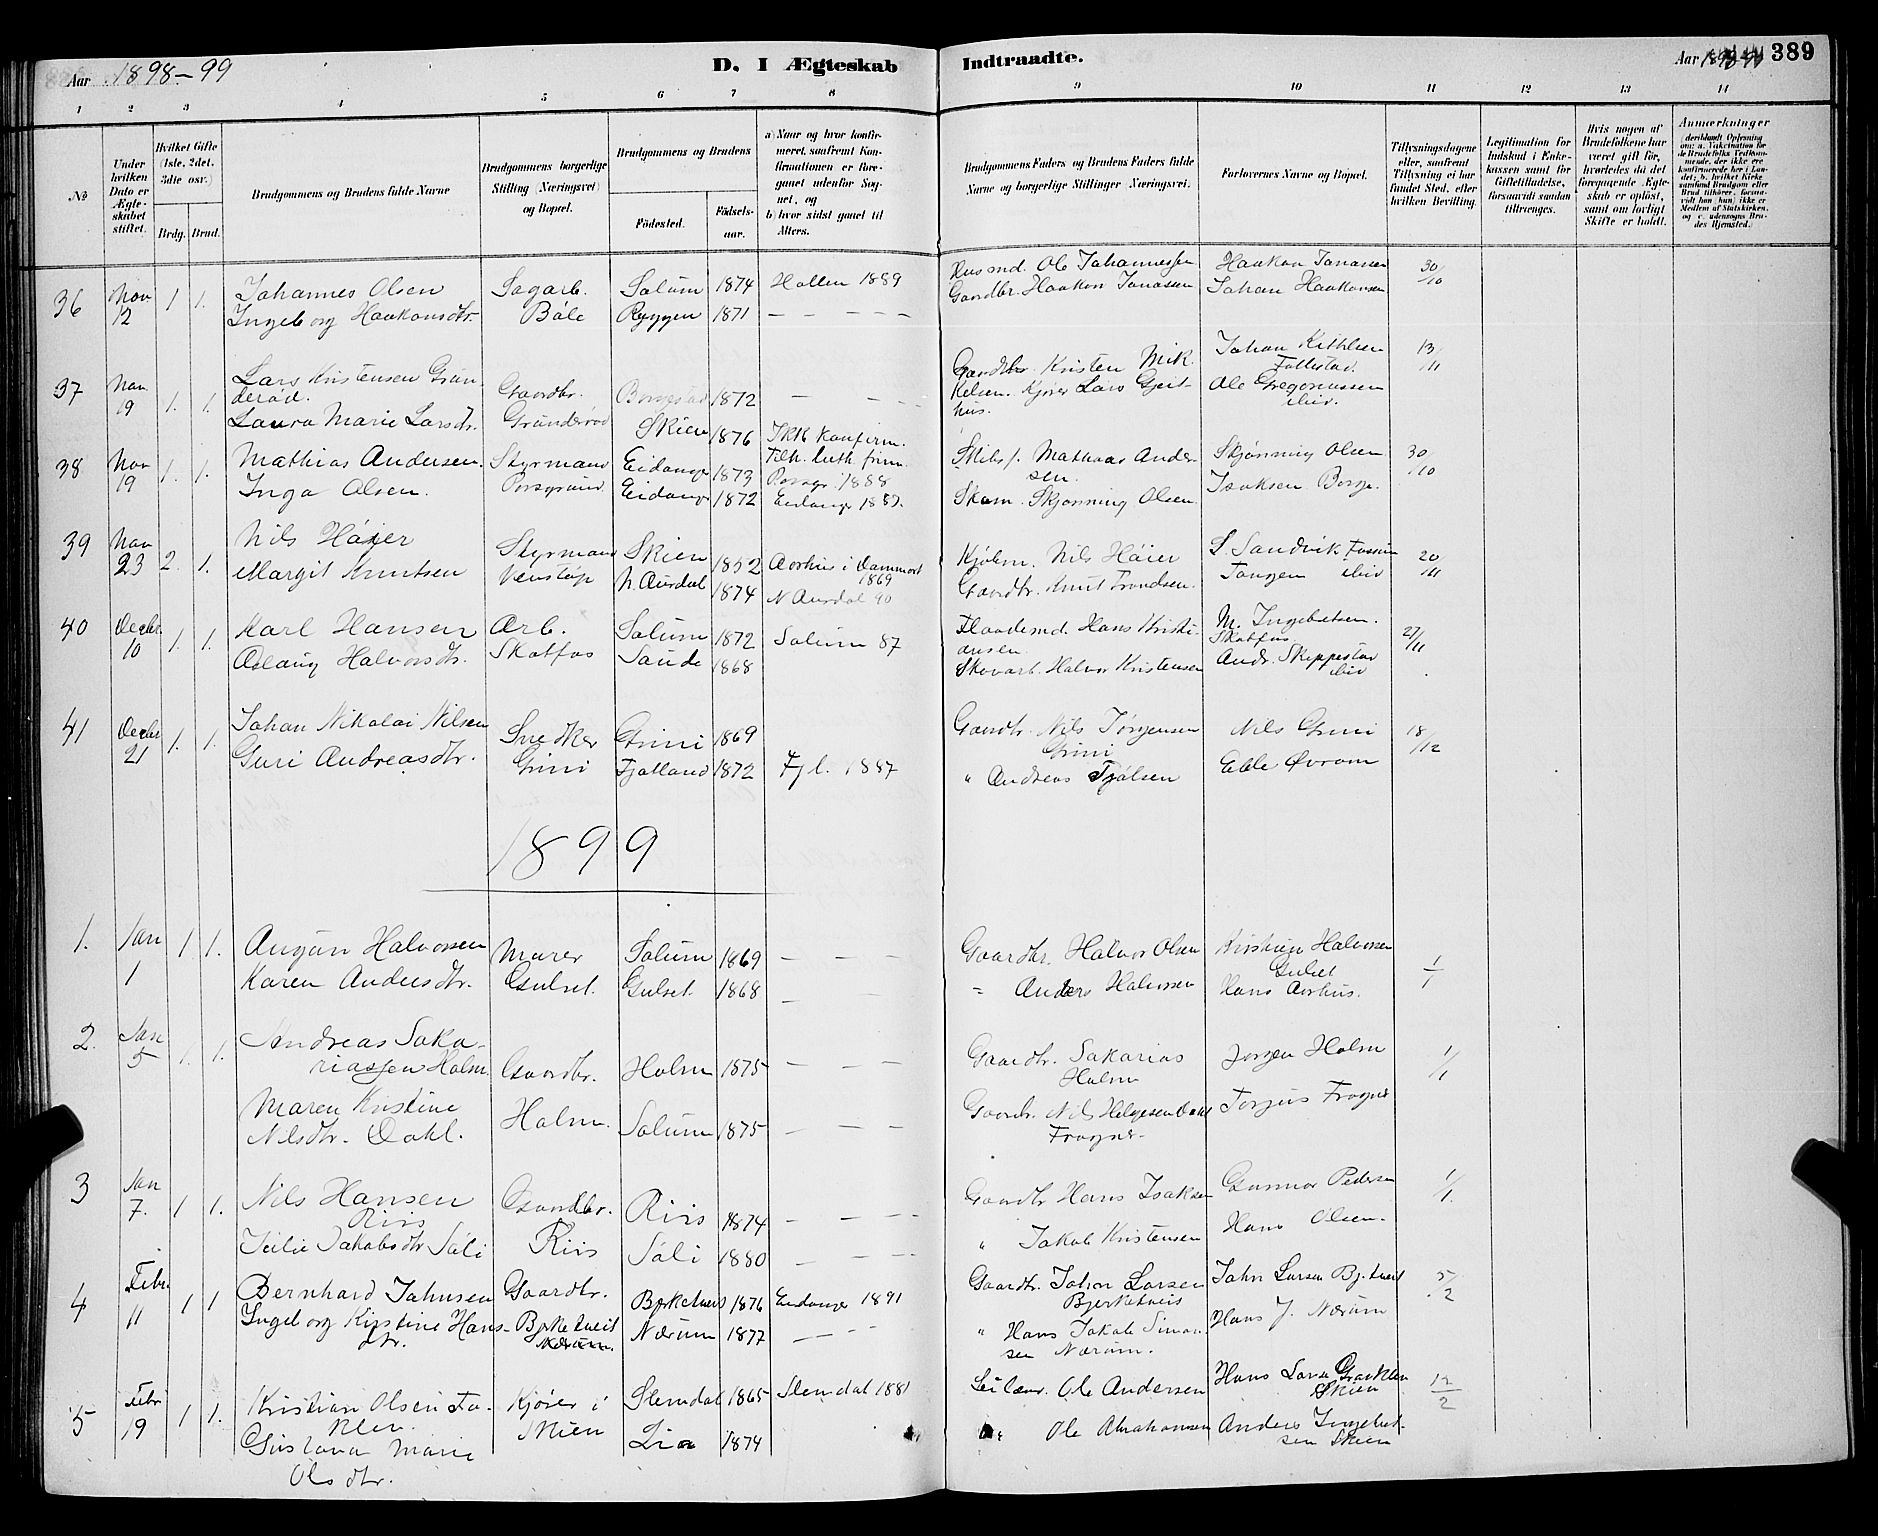 Aar 1898-99
D. I Ægteskab
Indtraadte.
Aar 1898-99
389
1 2 3 4 5 6 7 8 9 10 11 12 13 14
№
Under hvilken Dato er Ægteskabet stiftet.
Hvilket Gifte (1ste, 2det, 3dte osv.)
Brdg. Brud.
Brudgommens og Brudens fulde Navne
Brudgommens borgerlige Stilling (Næringsvei) og Bopæl.
Brudgommens og Brudens
Fødested.
Fødselsaar.
a) Naar og hvor konfirmeret, saafremt Konfirmationen er foregaaet udenfor Sognet, og
b) hvor sidst gaaet til Alters.
Brudgommens Faders og Brudens Faders fulde Navne og borgerlige Stillinger (Næringsvei).
Forlovernes Navne og Bopæl.
Tillysningsdagene eller, saafremt Tillysning ei har fundet Sted, efter hvilken Bevilling.
Legitimation for Indskud i Enkekassen samt for Giftetilladelse, forsaavidt saadan tiltrænges.
Hvis nogen af Brudefolkene har været gift før, hvorledes da det foregaaende Ægteskab er opløst, samt om lovligt Skifte er holdt.
Anmærkninger
36 Nov 12 1 1. Johannes Olsen Sagarb. Solum 1874 Hollen 1889 Husmd. Ole Johannessen Haakon Jonassen 30/10
Ingeborg Haakonsdtr. Bøle Ryggen 1871 — — — — — Gaardbr. Haakon Jonassen Johan Haakonsen
37 Nov 19 1. 1. Lars Kristensen Grunderød. Gaardbr. Borgestad 1872 — — — — Gaardbr. Kristen Mikkelsen. Johan Kittilsen 13/11
Laura Marie Larsdtr. Grunderød Skien 1876 Ikke konfirm. Kjører Lars Gjerthus. Ole Gregoriussen ibid.
Tilh. luth. frim.
38 Nov 19 1. 1. Mathias Andersen. Styrmand Eidanger 1873 Porsgr. 1888 Skibsf. Mathias Andersen. Skjønning Olsen 30/10
Inga Olsen. Porsgrund Eidanger 1872 Eidanger 1887. Skom. Skjønning Olsen Isaksen Borge.
39 Nov 23 2. 1. Nils Høier Styrmand Skien 1852 Aarhus i Danmark 1869 Kjøbm. Nils Høier S. Sandvik Fossum 20/11
Margit Knutsen Venstøp N. Aurdal 1874 N Aurdal 90 Gaardbr. Knut Trondsen. Tangen ibid
40 Decbr 10 1. 1. Karl Hansen Arb. Solum 1872 Solum 87 Flaademd. Hans Kristiansen M. Ingebretsen. Skotfos 27/11
Aslaug Halvorsdtr. Skotfos Saude 1868 Skovarb. Halvor Kristensen Andr. Skippestad ibid
41 Decbr 21 1. 1. Johan Nikolai Nilsen Snedker Grini 1869 Gaardbr. Nils Jørgensen Grini Nils Grini 18/12
Guri Andreasdtr. Grini Fjelland 1872 Fjl. 1887 " Andreas Fjølsen Øvrom
1899
1. Jan 1 1 1. Augun Halvorsen Murer Solum 1869 — — — Gaardbr. Halvor Olsen Kristian Halvorsen Gulset 1/1
Karen Andersdtr. Gulset. Gulset. 1868 — — — = Anders Halvorsen Hans Aarhus.
2. Jan 5 1. 1. Andreas Sakariassen Holm. Gaardbr. Holm 1875 — — — Gaardbr. Sakarias Holm Jørgen Holm 1/1
Maren Kristine Nilsdtr. Dahl. Holm. Solum 1875 — — — Gaardbr. Nils Helgesen Dahl Frogner. Torjus Frogner
3 Jan 7. 1 1. Nils Hansen Riis Gaardbr. Riis 1874 — — — Gaardbr Hans Isaksen Gunnar Pedersen 1/1.
Jakobsdtr Søli Riis Søli 1880 — — — " Jakob Kristensen Hans Olsen.
4 Febr 11 1 1 Bernhard Johnsen Gaardbr. Bjerketveit 1876 Eidanger 1891 Gaardbr. John Larsen Bjerketveit John Larsen Bj.tveit 5/2
Ingeborg Kirstine Hansdtr. Bjerketveit Nærum. Nærum 1877 — — — " Hans Jakob Simonsen Nærum. Hans J. Nærum
5 Febr 19 1 1. Kristian Olsen Kjører i Slemdal 1865 Slemdal 1881 Ole Andersen Hans Skien 12/2
Gustava Marie Olsdtr. Skien Lia 1874 Ole Abrahamsen Anders Ingebretsen Skien